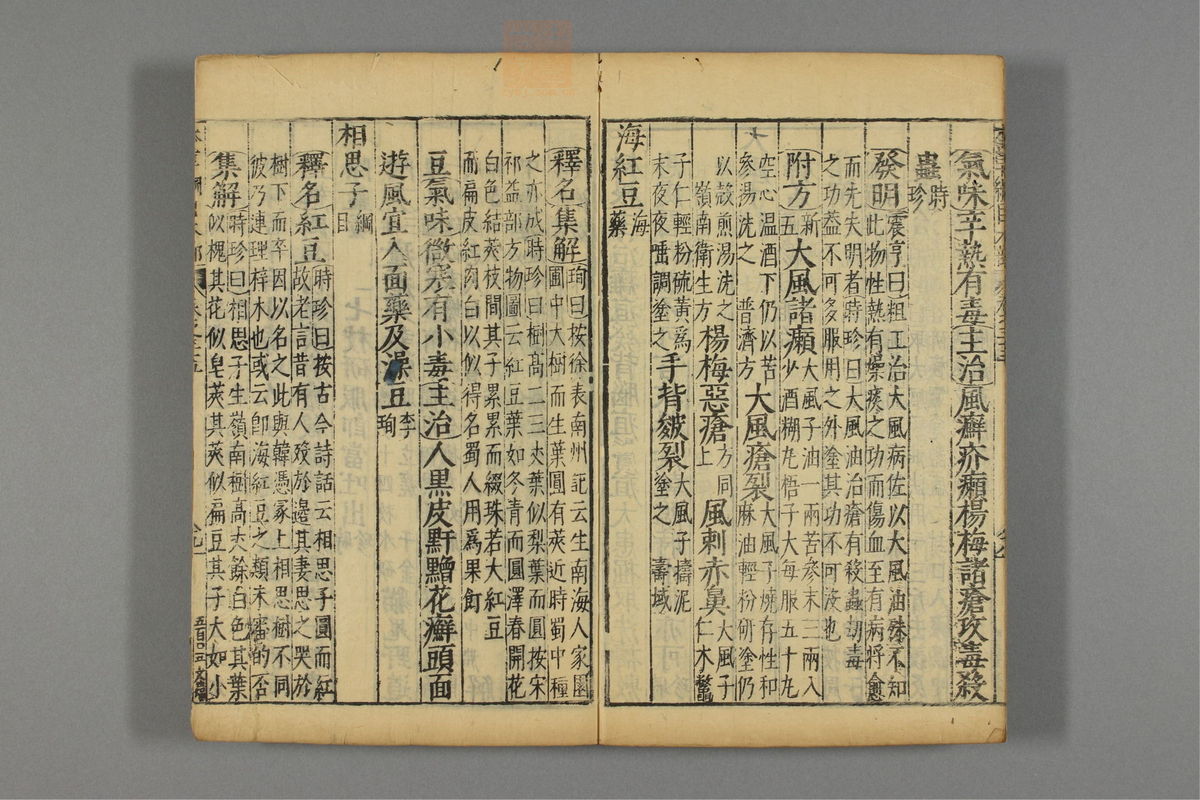 氣味辛熱有毒主治風癬疥癩楊梅諸瘡攻毒殺
蟲時珍
發明震亨曰粗工治大風病佐以大風油殊不知
此物性熱有燥痰之功而傷血至有病將愈
而先失明者時珍曰大風油治瘡有殺蟲劫毒
之功蓋不可多服用之外塗其功不可没也
附方新五大風諸癩大風子油一兩苦參末三兩入
少酒糊丸梧子大每服五十丸
空心温酒下仍以苦
參湯洗之普濟方大風瘡裂大風子燒存性和
麻油輕粉研塗仍
以殼煎湯洗之
嶺南衛生方楊梅惡瘡方同上風刺赤鼻大風子仁木鱉
子仁輕粉硫黃爲
末夜夜唾調塗之手背皴裂大風子擣泥塗之壽域
海紅豆海藥
釋名集解珣曰按徐表南州記云生南海人家園
圃中大樹而生葉圓有莢近時蜀中種
之亦成時珍曰樹高二三丈葉似梨葉而圓按宋
祁益部方物圖云紅豆葉如冬青而圓澤春開花
白色結莢枝間其子累累而綴珠若大紅豆
而扁皮紅肉白以似得名蜀人用爲果飣
豆氣味微寒有小毒主治人黒皮䵟黯花癬頭面
遊風宜入面藥及澡豆李珣
相思子綱目
釋名紅豆時珍曰按古今詩話云相思子圓而紅
故老言昔有人殁於邊其妻思之哭於
樹下而卒因以名之此與韓憑冢上相思樹不同
彼乃連理梓木也或云即海紅豆之類未審的否
集解時珍曰相思子生嶺南樹高丈餘白色其葉
似槐其花似皂莢其莢似扁豆其子大如小